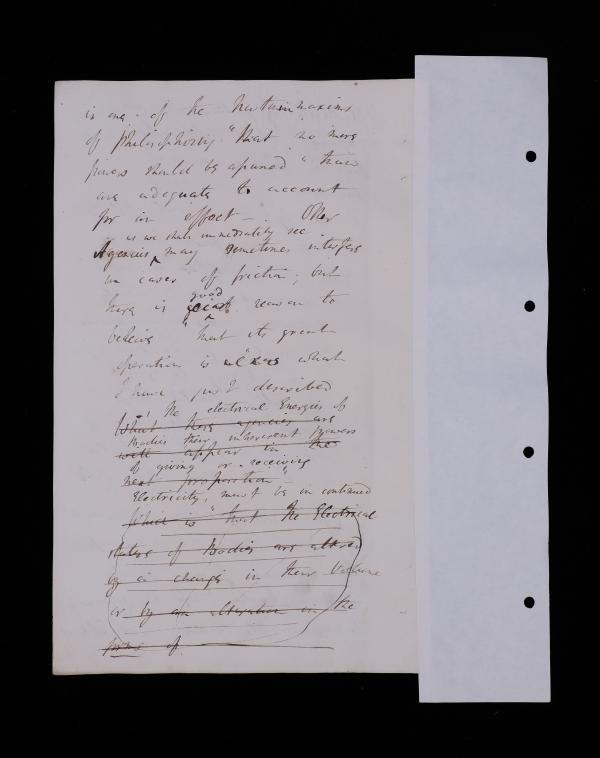 is one of the Newtonian maxims
of philosophising "that no more
powers should be assumed" than
are adequate to account
for an effect —. Other
as we shall immediately see
Agencies may sometimes interfere
in cases of friction; but
good
there is reason to
believe that its great
operation is what
I have just described
The electrical Energies of
What these agencies are
Bodies their inherent powers
will appear in the
of giving or receiving
next proposition"
Electricity, must be in continued
which is "that the Electrical
states of Bodies are altered
by a change in their Volume
or by an alteration in the
form of